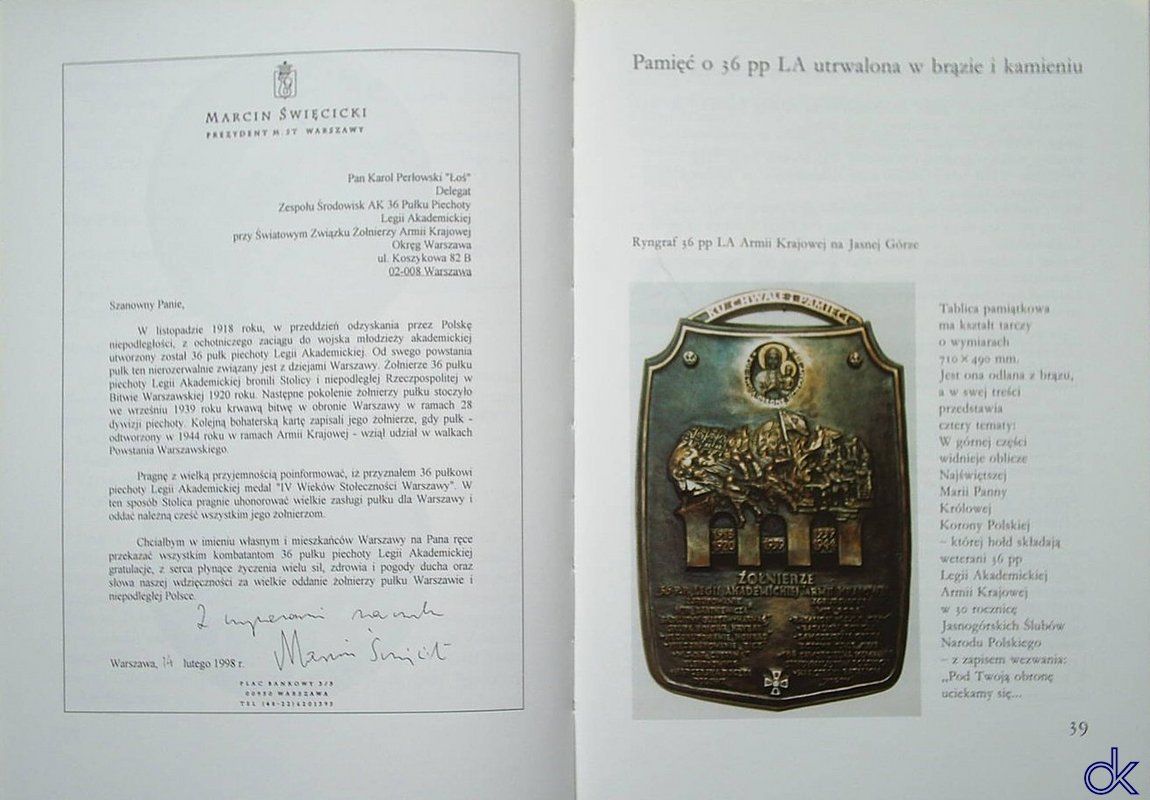 MARCIN ŚWIĘCICKI
PREZYDENT M. ST. WARSZAWY
Pan Karol Perłowski "Łoś"
Delegat
Zespołu Środowisk AK 36 Pułku Piechoty
Legii Akademickiej
przy Światowym Związku Żołnierzy Armii Krajowej
Okręg Warszawa
ul. Koszykowa 82 B
02-008 Warszawa
Szanowny Panie,
W listopadzie 1918 roku, w przeddzień odzyskania przez Polskę
niepodległości, z ochotniczego zaciągu do wojska młodzieży akademickiej
utworzony został 36 pułk piechoty Legii Akademickiej. Od swego powstania
pułk ten nierozerwalnie związany jest z dziejami Warszawy. Żołnierze 36 pułku
piechoty Legii Akademickiej bronili Stolicy i niepodległej Rzeczpospolitej w
Bitwie Warszawskiej 1920 roku. Następne pokolenie żołnierzy pułku stoczyło
we wrześniu 1939 roku krwawą bitwę w obronie Warszawy w ramach 28
dywizji piechoty. Kolejną bohaterską kartę zapisali jego żołnierze, gdy pułk -
odtworzony w 1944 roku w ramach Armii Krajowej - wziął udział w walkach
Powstania Warszawskiego.
Pragnę z wielką przyjemnością poinformować, iż przyznałem 36 pułkowi
piechoty Legii Akademickiej medal "IV Wieków Stołeczności Warszawy". W
ten sposób Stolica pragnie uhonorować wielkie zasługi pułku dla Warszawy i
oddać należną cześć wszystkim jego żołnierzom.
Chciałbym w imieniu własnym i mieszkańców Warszawy na Pana ręce
przekazać wszystkim kombatantom 36 pułku piechoty Legii Akademickiej
gratulacje, z serca płynące życzenia wielu sił, zdrowia i pogody ducha oraz
słowa naszej wdzięczności za wielkie oddanie żołnierzy pułku Warszawie i
niepodległej Polsce.
Z wyrazami szacunku
Marcin Święcicki
Warszawa, 14 lutego 1998 r.
PLAC BANKOWY 3/5
00950 WARSZAWA
TEL (48-22)6201395
Pamięć o 36 pp LA utrwalona w brązie i kamieniu
Ryngraf 36 pp LA Armii Krajowej na Jasnej Górze
KU CHWALE I PAMIĘCI
1918 1920
1939
1944
ŻOŁNIERZE
36 P.P. LEGII AKADEMICKIEJ ARMII KRAJOWEJ
Tablica pamiątkowa
ma kształt tarczy
o wymiarach
710 × 490 mm.
Jest ona odlana z brązu,
a w swej treści
przedstawia
cztery tematy:
W górnej części
widnieje oblicze
Najświętszej
Marii Panny
Królowej
Korony Polskiej
– której hołd składają
weterani 36 pp
Legii Akademickiej
Armii Krajowej
w 50 rocznicę
Jasnogórskich Ślubów
Narodu Polskiego
– z zapisem wezwania:
„Pod Twoją obronę
uciekamy się...
39
dk